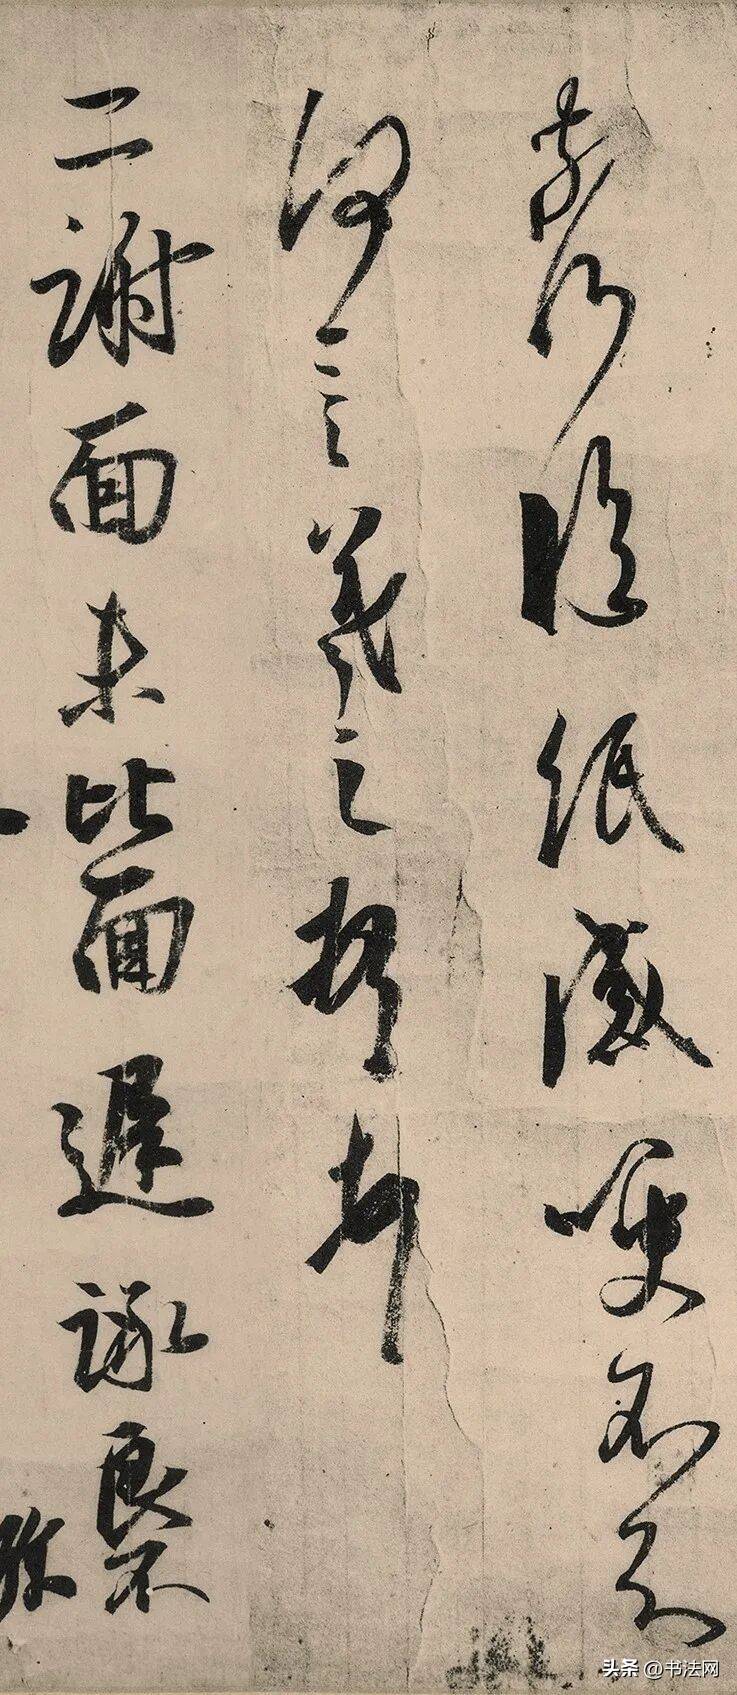 奈何臨紙感哽不知
何言羲之頓首頓首
二謝面未比面遲詠良不
头条 @书法网